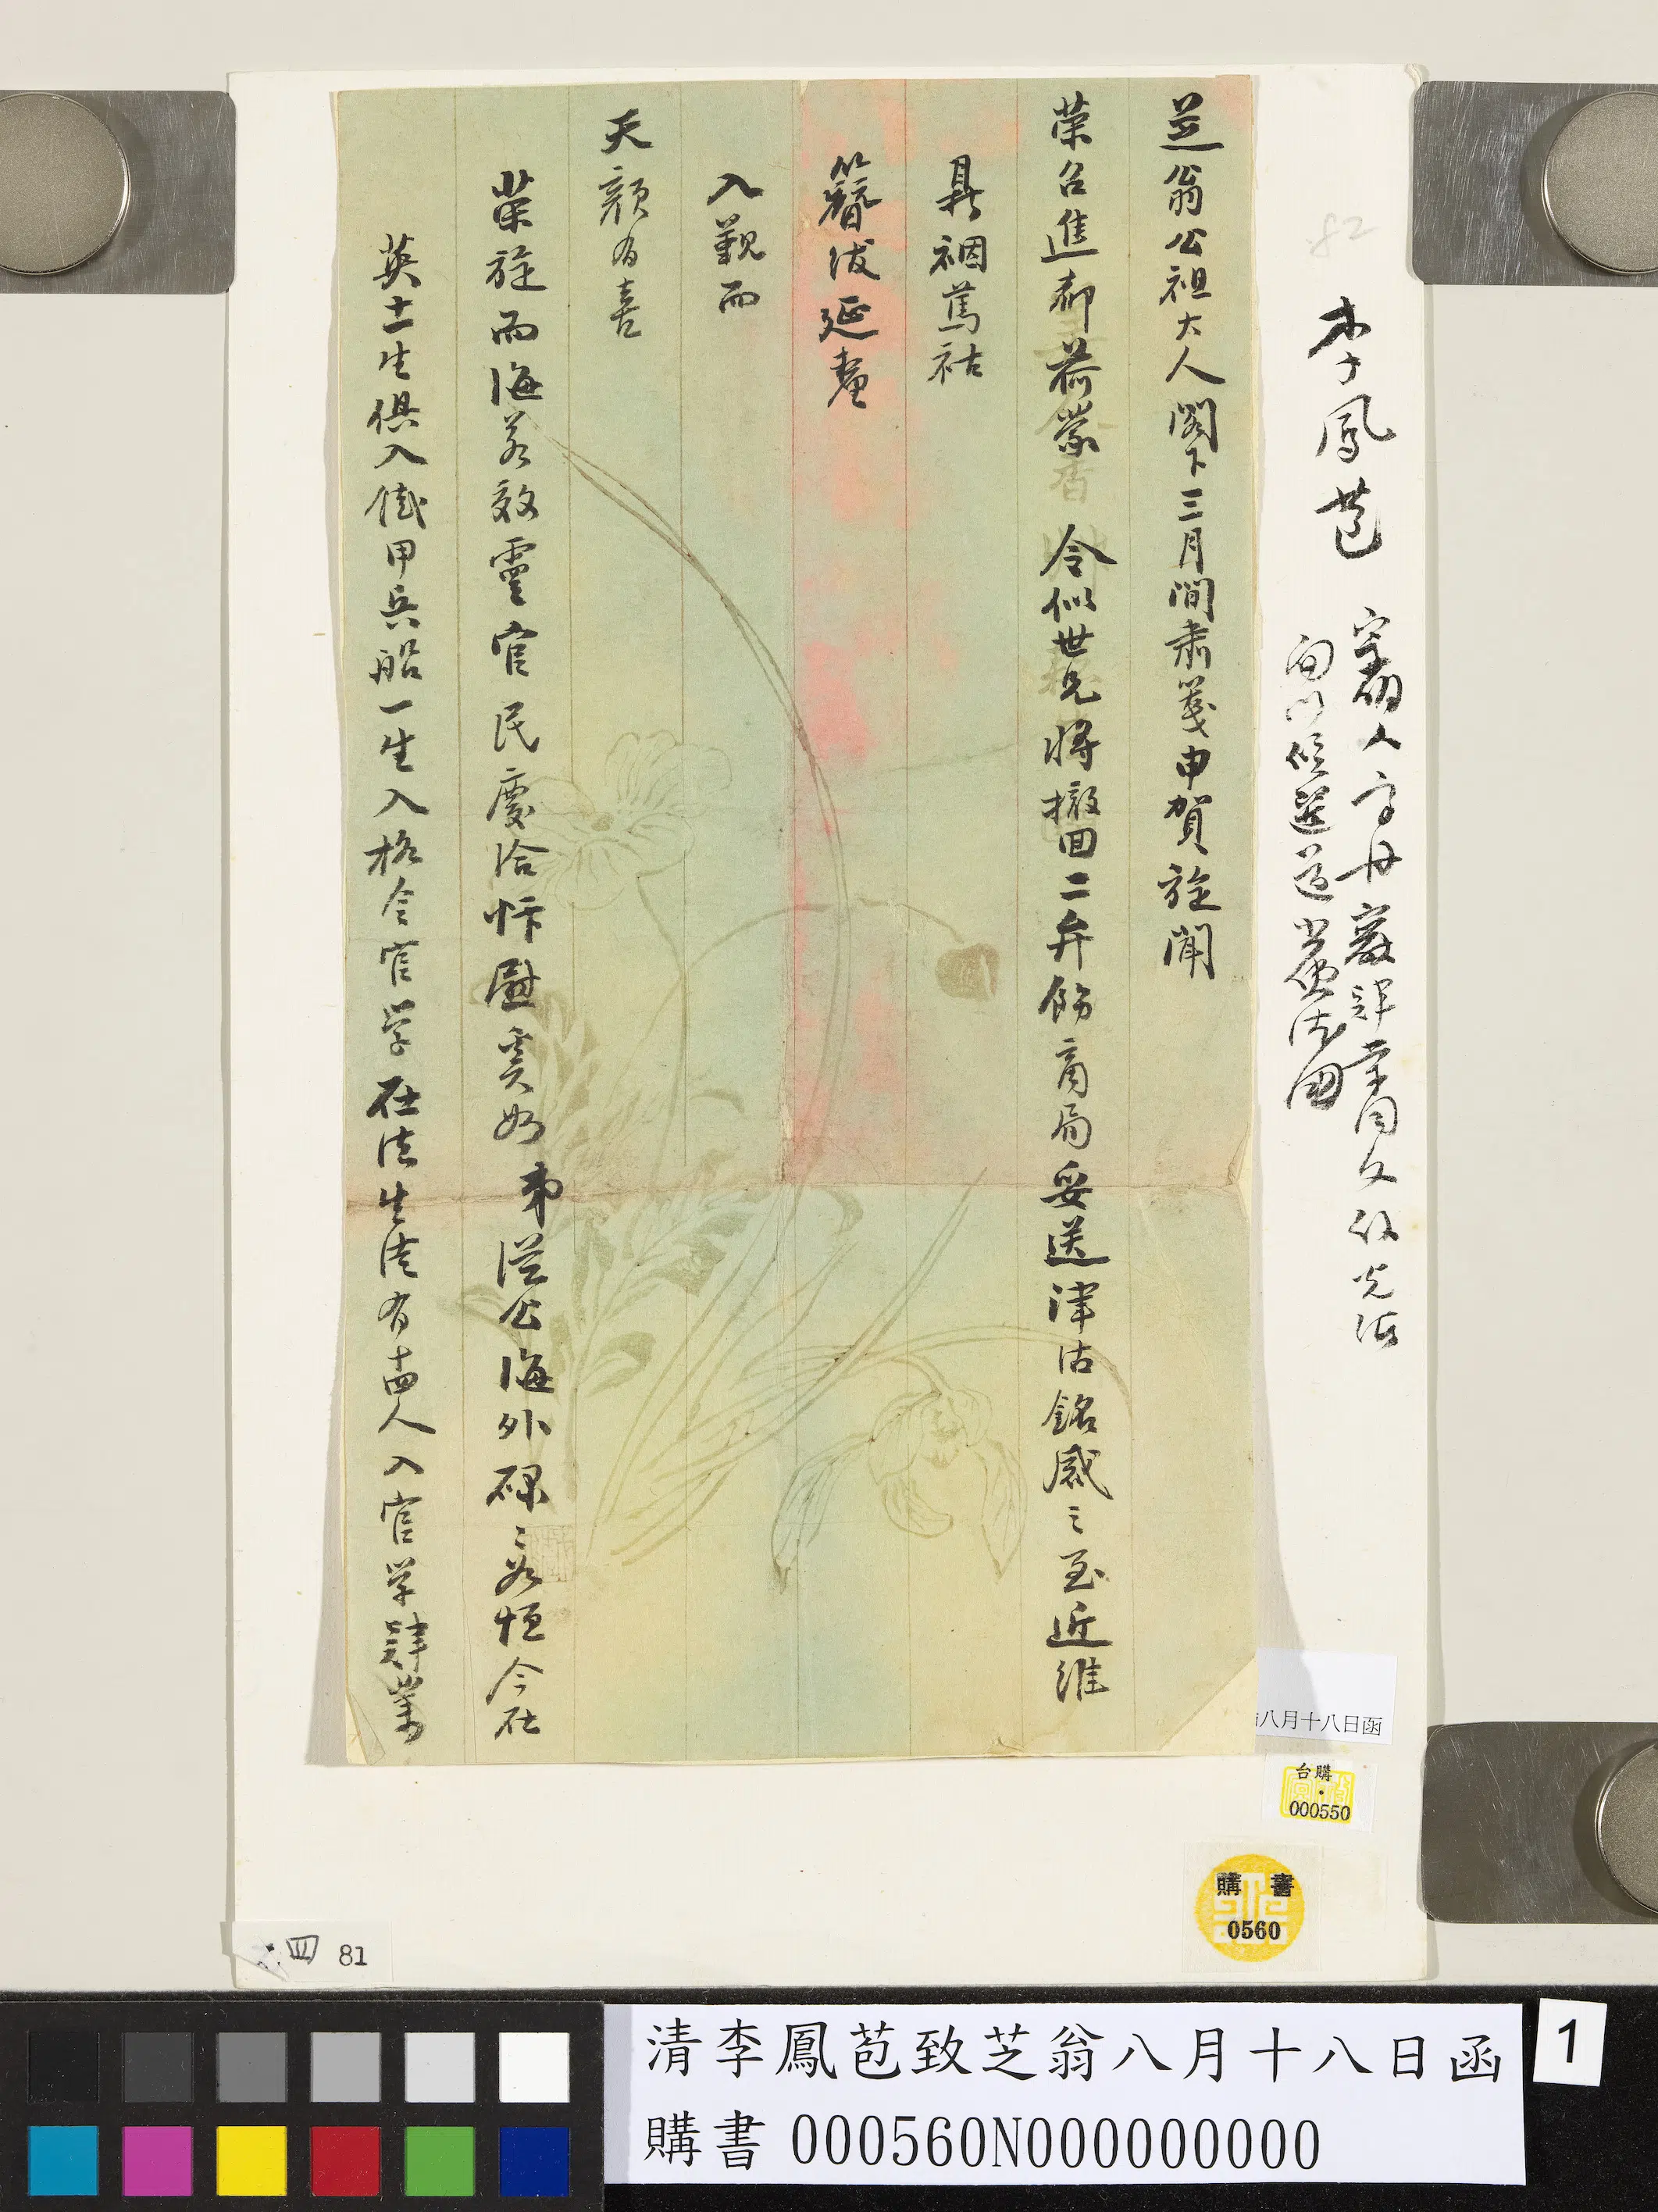 李鳳苞
芝翁公祖大人閣下三月間肅箋申賀旋聞
榮召進都荷蒙 令似世兄將撤回二弁飭商局妥送津沽銘感之至近維
鼎祻篤祜
簪紱延釐
入覲而
天顏有喜
榮旋而海若效靈官民慶洽忭慰奚如弟從公海外碌々如恒今在
英十二生俱入鐵甲兵船一生入格令官學在法生徒有十四人入官學肄業
八月十八日函
台購
000550
購書
0560
四 81
82
清李鳳苞致芝翁八月十八日函
購書 000560N000000000
1